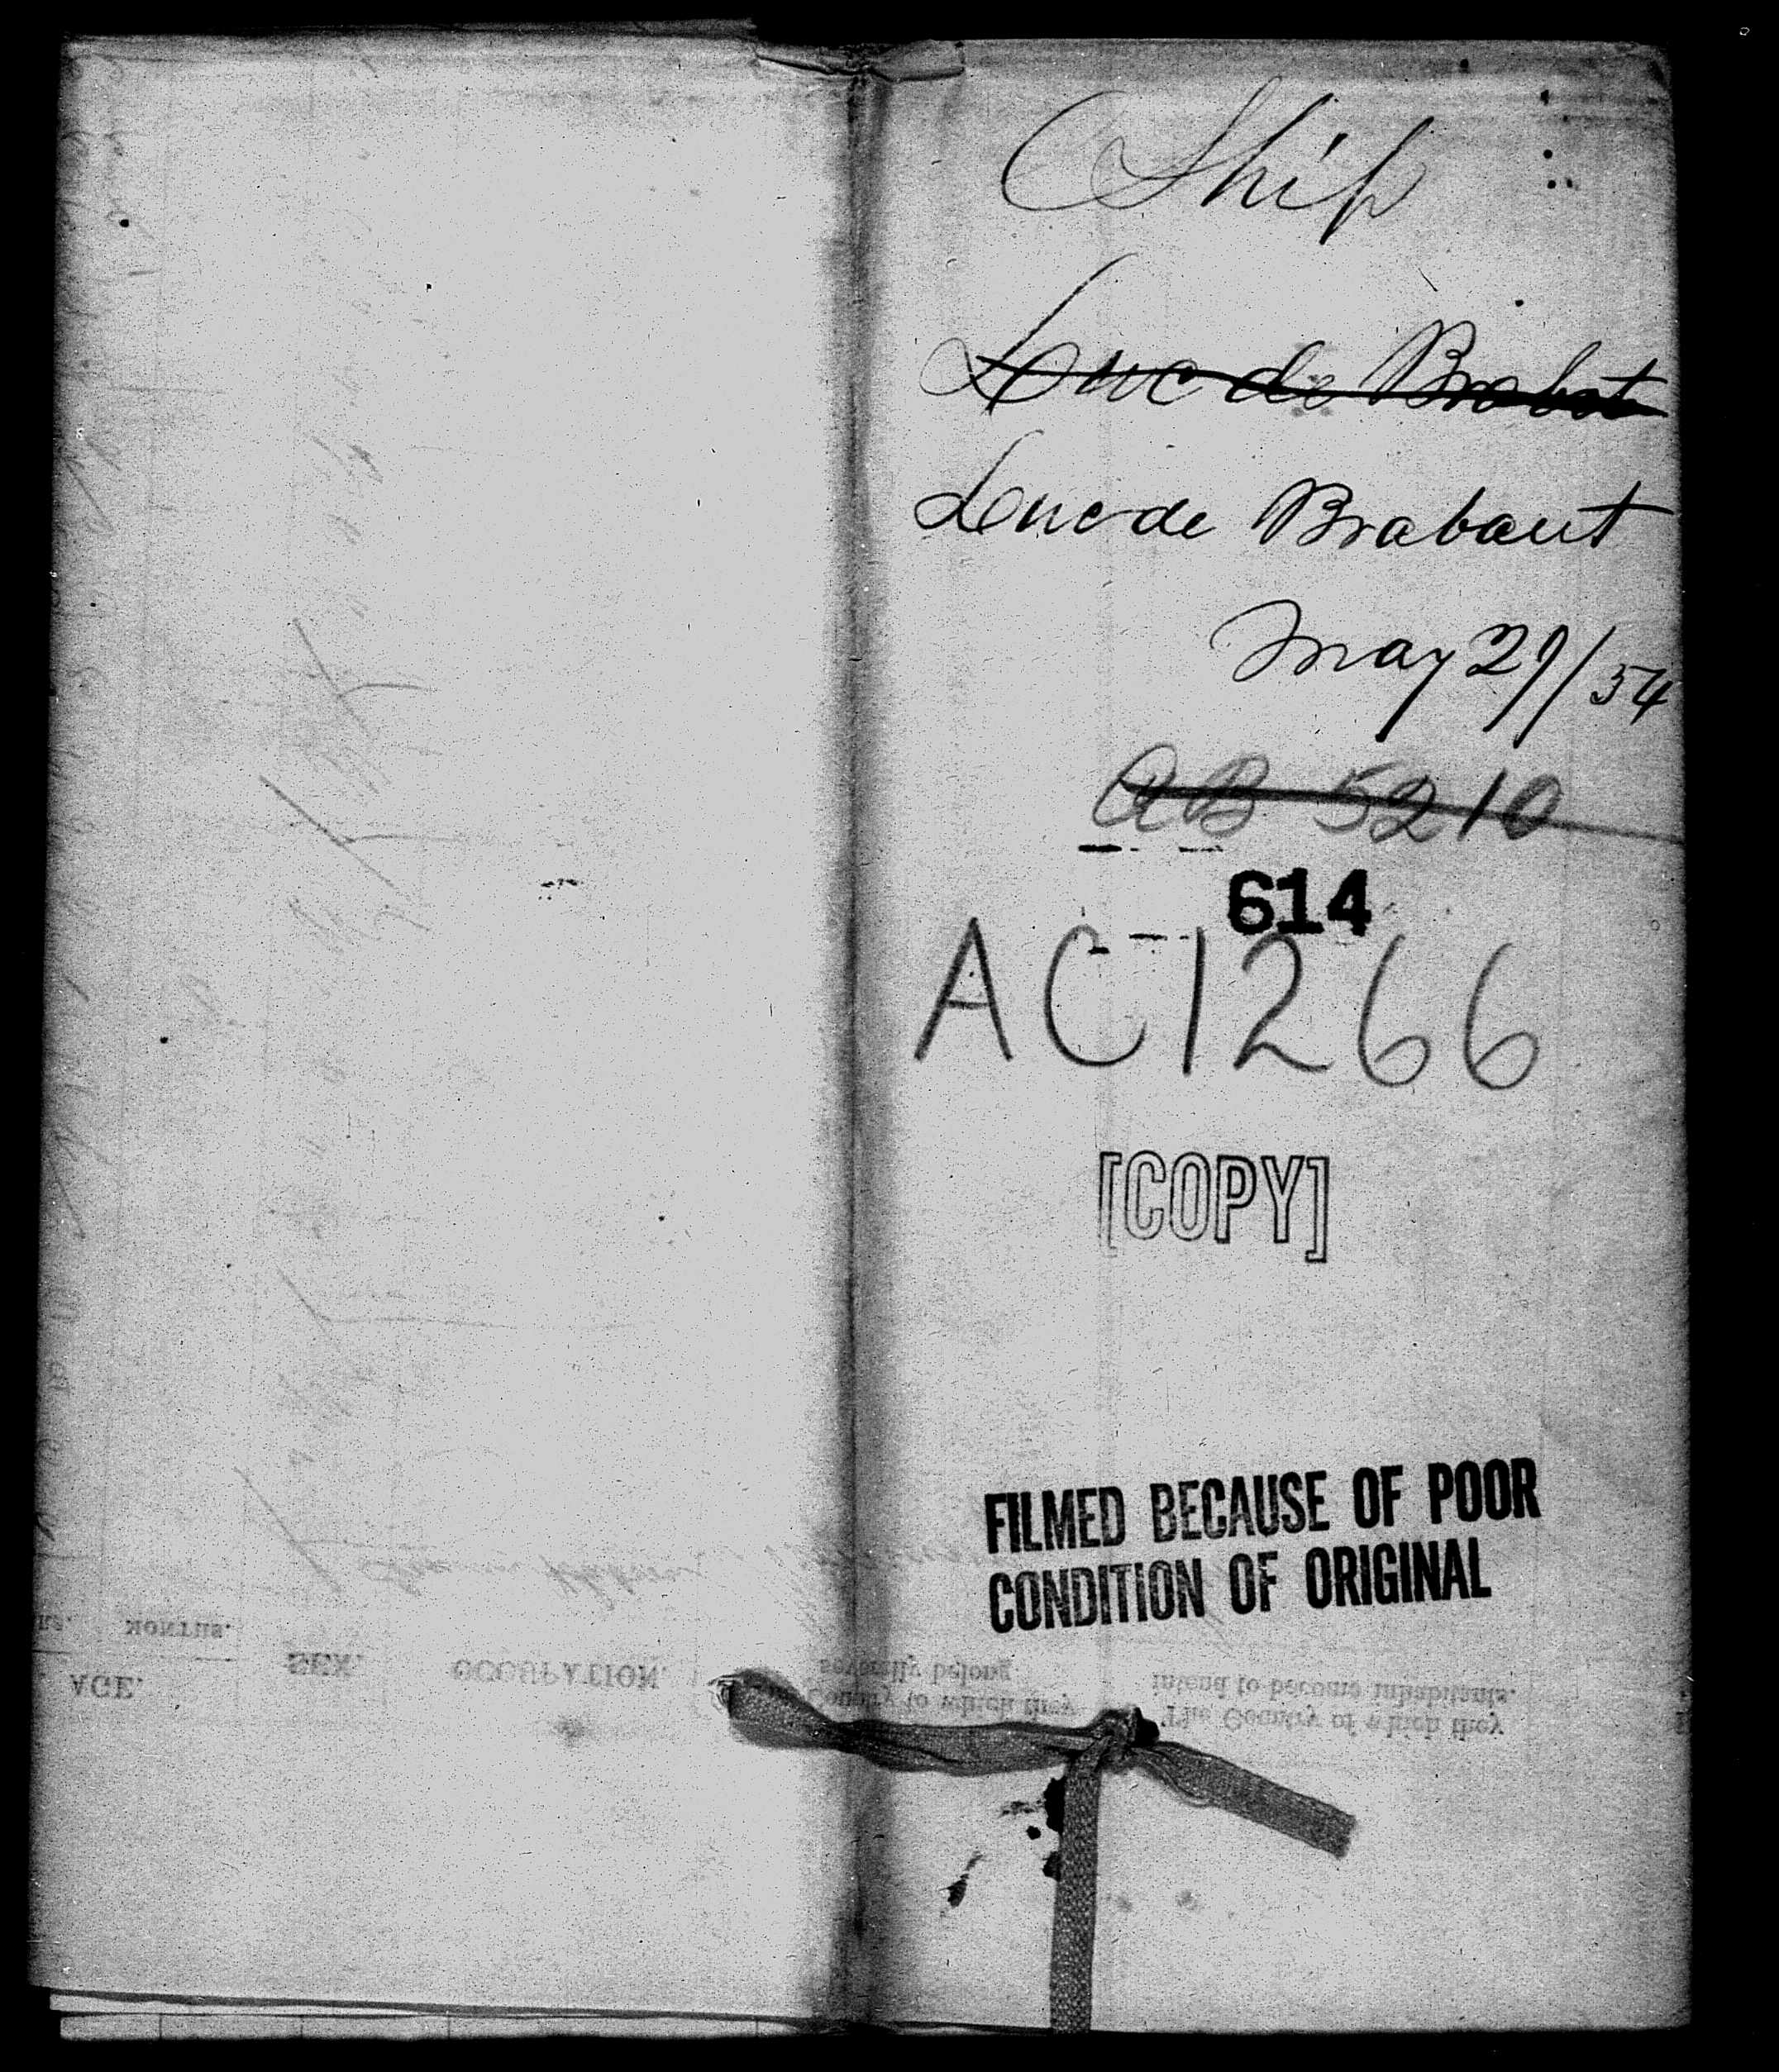 Ship
Duc de Brabat
Duc de Brabant
May 29/54
AB 5210
614
AC1266
[COPY]
FILMED BECAUSE OF POOR
CONDITION OF ORIGINAL
MONTHS.
AGE.
SEX.
OCCUPATION.
The Country to which they
severally belong
The Country of which they
intend to become inhabitants.